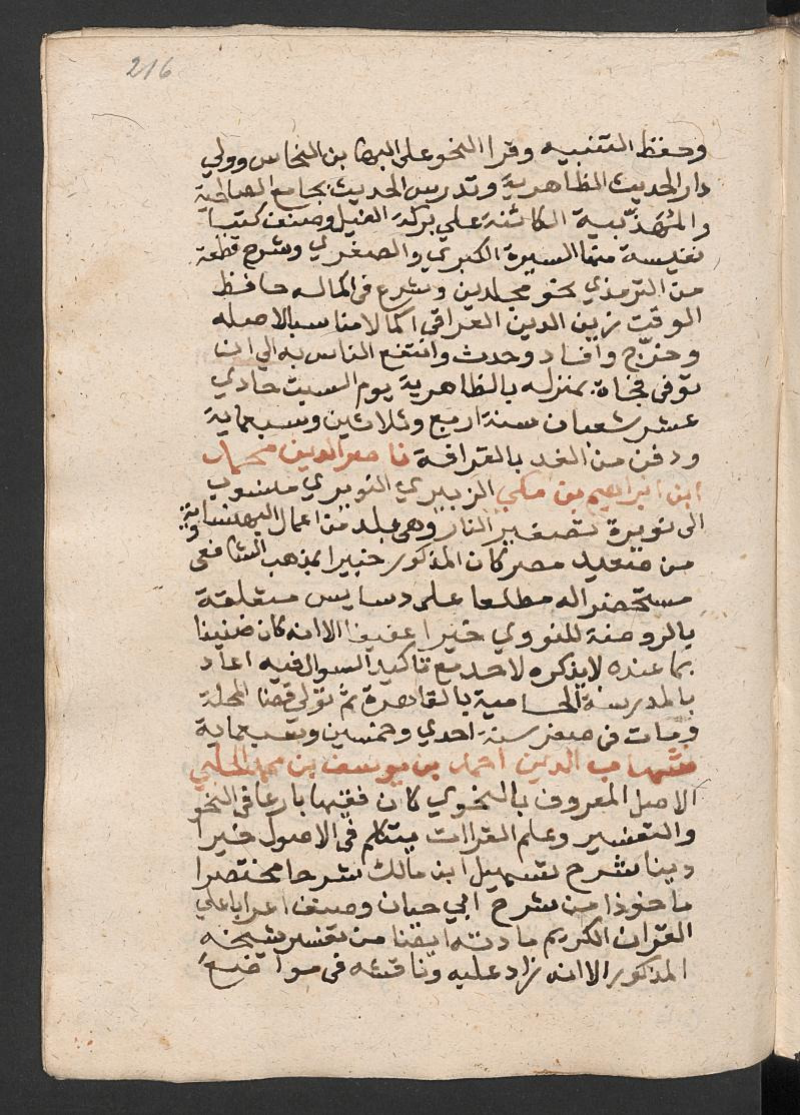 216
وحفظ التنبيه وقرا النحو على البها بن النحاس وولي
دار الحديث الظاهرية وتدريس الحديث بجامع الصالحية
والمهذّبية الكائنة علي بركة الفيل وصنف كتبا
نفيسة منها السيرة الكبري والصغري وشرح قطعة
من الترمذي نحو مجلدين وشرع في اكماله حافظ
الوقت زين الدين العراقي اكمالا مناسبا لاصله
وخرّج وافاد وحدث وانتفع الناس به الي ان
توفى فجاة بمنزله بالظاهرية يوم السبت حادي
عشر شعبان سنة اربع وثلاثين وسبعماية
ودفن من الغد بالقرافة ناصر الدين محمد
ابن ابراهيم بن مكي الزبيري النويري منسوب
الى نويرة تصغير النار وهى بلد من اعمال البهنساوية
من صعيد مصر كان المذكور خبيرا بمذهب الشافعى
مستحضرا له مطلعا على دسايس متعلقة
بالروضة للنووي خيرا عفيفا الا انه كان ضنينا
بما عنده لا يذكره لاحد مع تاكيد السوال فيه اعاد
بالمدرسة الحسامية بالقاهرة ثم تولى قضا المحلة
ومات في صفر سنة احدي وخمسين وسبعماية
شهاب الدين احمد بن يوسف بن محمد الحلبي
الاصل المعروف بالنحوي كان فقيها بارعا فى النحو
والتفسير وعلم القراات يتكلم فى الاصول خيرا
دينا شرح تسهيل ابن مالك شرحا مختصرا
ماخوذا من شرح ابي حيان وصنف اعرابا علي
القران الكريم مادته ايضا من تفسير شيخه
المذكور الا انه زاد عليه وناقشه فى مواضع